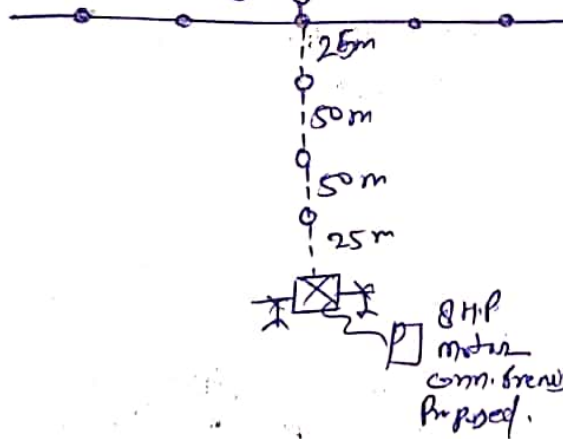 25m
50m
50m
25m
8 H.P
motor
conn.
Proposed.